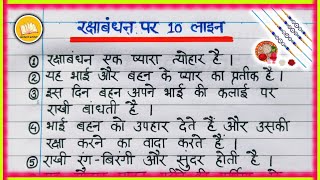 रक्षाबंधन पर 10 लाइन
1 रक्षाबंधन एक प्यारा त्योहार है ।
2 यह भाई और बहन के प्यार का प्रतीक है ।
3 इस दिन बहन अपने भाई की कलाई पर
राखी बांधती है ।
4 भाई बहन को उपहार देते हैं और उसकी
रक्षा करने का वादा करते हैं ।
5 राखी रंग-बिरंगी और सुंदर होती है ।